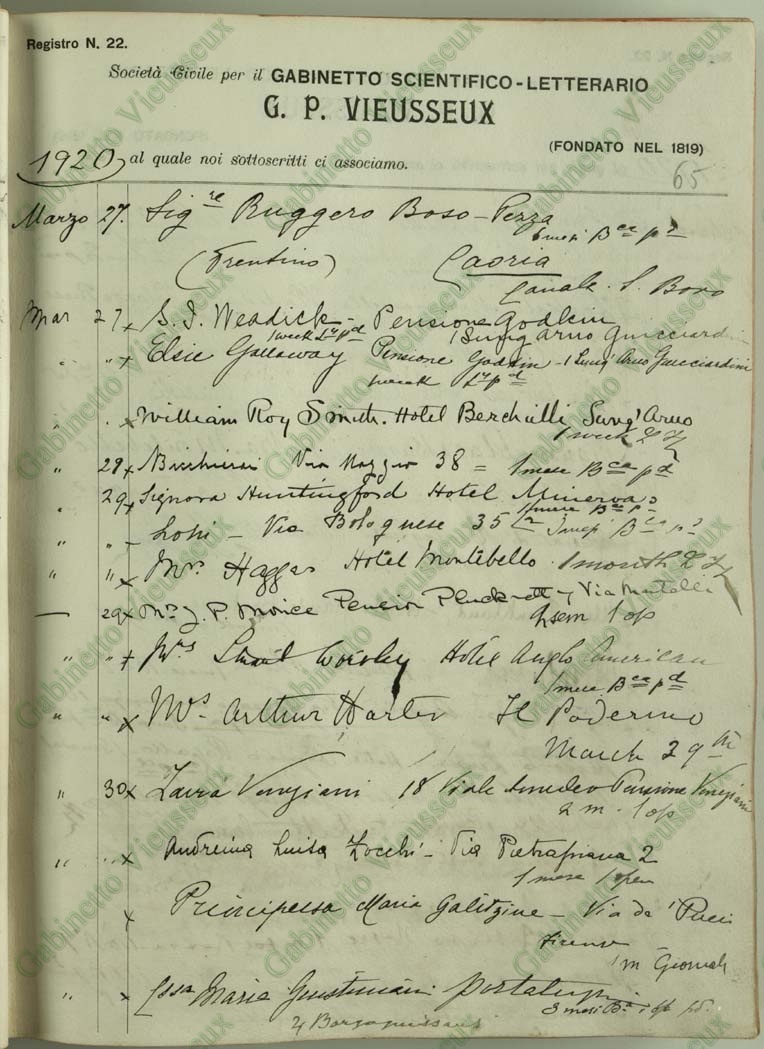 Registro N. 22.
Società Civile per il GABINETTO SCIENTIFICO-LETTERARIO
G. P. VIEUSSEUX
(FONDATO NEL 1819)
1920, al quale noi sottoscritti ci associamo.
65
Marzo 27. Sig.re Ruggero Boso-Pezza
6 mesi Bca pd
(Trentino) Caoria
Canale S. Bovo
Mar 27 x S. J. Weadick - Pensione Godkin
1 week pd 1 Lung Arno Guicciardini
" " x Elsie Gallaway Pensione Godkin - 1 Lung' Arno Guicciardini
1 week pd
" x William Roy Smith. Hotel Berchielli, Lung' Arno
1 week
" 29 x Via Maggio 38 = 1 mese Bca pd
" 29 x Signora Huntingford Hotel Minerva
1 mese Bca
" " - Via Bolognese 35 3 mesi Bca
" " x Mrs Haggar Hotel Montebello. 1 month
29 x J. P. Morice Pension Via Martelli
2 sem 1 op
" " x Mrs Hotel Anglo American
1 mese Bca pd
" " x Mrs Arthur Harter Il Poderino
March 29th
" 30 x Laura Veneziani 18 Viale Amedeo Pensione Veneziani
2 m. 1 op
" " x Andreina Luisa Zocchi - Via Pietrapiana 2
1 mese 1 opera
x Principessa Maria Galitzine - Via de' Pucci
Firenze
1 m Giornali
" x Cssa Maria Giustiniani
3 mesi Ba 1 op pd.
4
Gabinetto Vieusseux